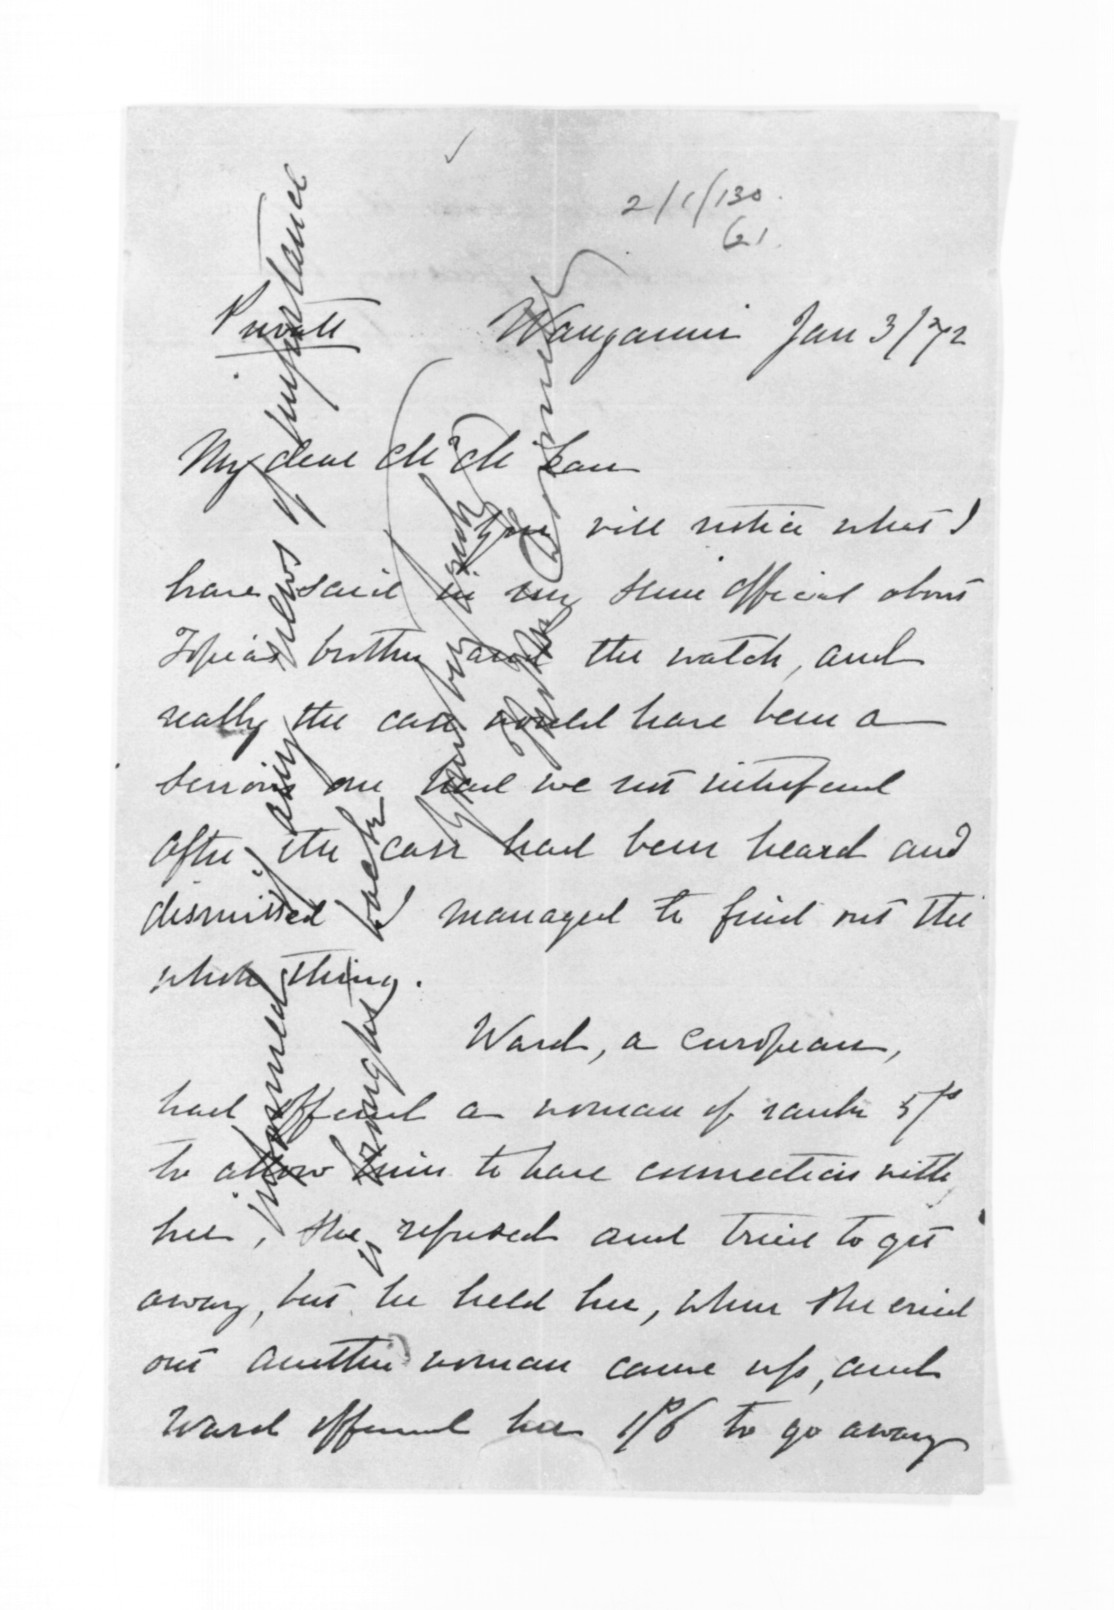 2/1/130.
(21.
Private
Wanganui Jan 3/72
My dear Mr McLean
You will notice what I
have said in my semi official about
Topia's brother and the watch, and
really the case would have been a
serious one had we not interfered
After the case had been heard and
dismissed I managed to find out the
whole thing.
Ward, a European,
had offered a woman of rank 5/-
to allow him to have connection with
her, she refused and tried to get
away, but he held her, when she cried
out another woman came up, and
Ward offered her 1/6 to go away
informed if any news of importance
is brought back
Yours very truly